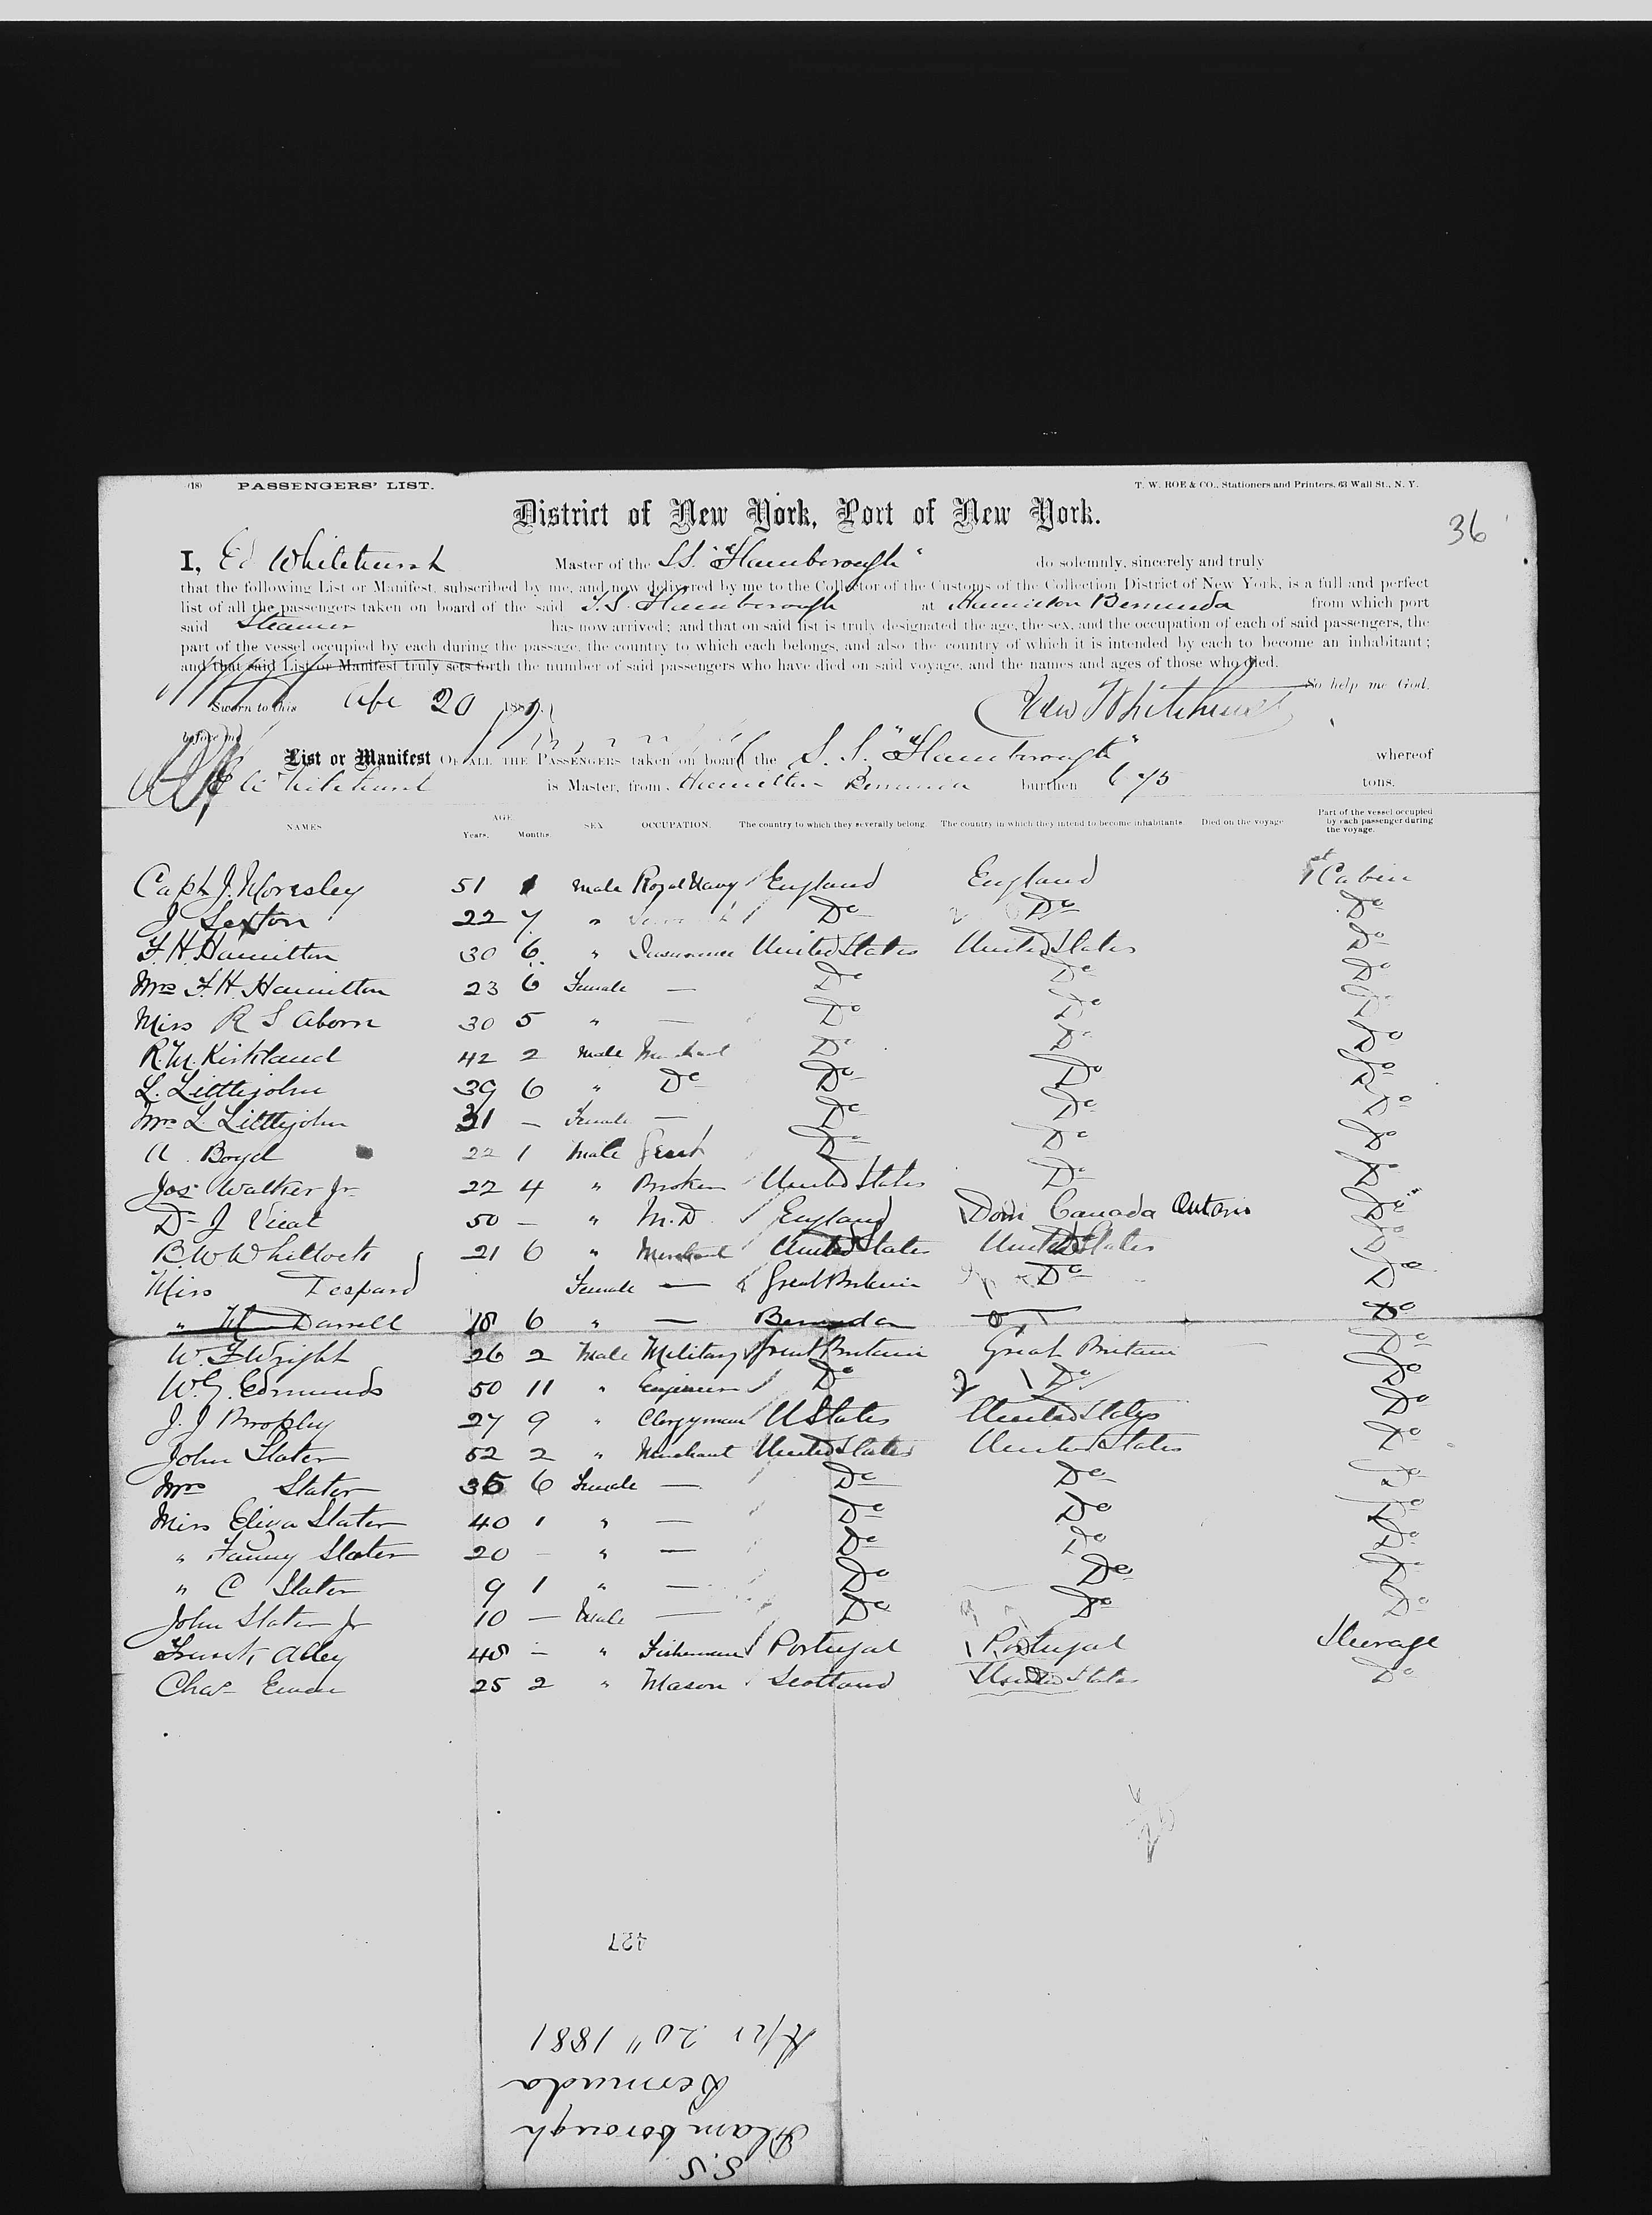 (18) PASSENGERS' LIST. T. W. ROE & CO., Stationers and Printers, 63 Wall St., N. Y.
District of New York, Port of New York.
36
I, Ed Whitehurst Master of the S.S. "Flamborough" do solemnly, sincerely and truly
that the following List or Manifest, subscribed by me, and now delivered by me to the Collector of the Customs of the Collection District of New York, is a full and perfect
list of all the passengers taken on board of the said S.S. Flamborough at Hamilton Bermuda from which port
said Steamer has now arrived; and that on said list is truly designated the age, the sex, and the occupation of each of said passengers, the
part of the vessel occupied by each during the passage, the country to which each belongs, and also the country of which it is intended by each to become an inhabitant;
and that said List or Manifest truly sets forth the number of said passengers who have died on said voyage, and the names and ages of those who died.
So help me God.
Sworn to this Apl 20 188 Edw Whitehurst
before me
List or Manifest OF ALL THE PASSENGERS taken on board the S. S. "Flamborough" whereof
E Whitehurst is Master, from Hamilton Bermuda burthen 675 tons.
NAMES AGE Years. Months. SEX OCCUPATION. The country to which they severally belong The country in which they intend to become inhabitants. Died on the voyage Part of the vessel occupied by each passenger during the voyage.
Capt J. Moresley 51 1 Male Royal Navy England England 1st Cabin
J Sexton 22 7 " Do Do Do
F. H. Hamilton 30 6 " Insurance United States United States Do
Mrs F. H. Hamilton 23 6 Female — Do Do Do
Miss R S Aborn 30 5 " — Do Do Do
R. M. Kirkland 42 2 Male Merchant Do Do Do
L. Littlejohn 39 6 " Do Do Do Do
Mrs L. Littlejohn 31 — Female — Do Do Do
A. Boyd 22 1 Male Do Do Do
Jos Walker Jr 22 4 " Broker United States Do Do
Dr J 50 — " M.D. England Dom Canada Ontario Do
B. W Whitlock 21 6 " Merchant United States United States Do
Miss Despard Female — Great Britain Do Do
" Darrell 18 6 " — Bermuda Do
W. F. Wright 26 2 Male Military Great Britain Great Britain Do
W. G. Edmunds 50 11 " Engineer Do Do Do
J. J Brophy 27 9 " Clergyman U States United States Do
John Slater 52 2 " Merchant United States United States Do
Mrs Slater 35 6 Female — Do Do Do
Miss Eliza Slater 40 1 " — Do Do Do
" Fanny Slater 20 — " — Do Do Do
" C Slater 9 1 " — Do Do Do
John Slater Jr 10 — Male — Do Do Do
Frank Alley 48 — " Fisherman Portugal Portugal Steerage
Chas Ewen 25 2 " Mason Scotland United States Do
427
S.S.
Flamborough
Bermuda
Apr 20" 1881